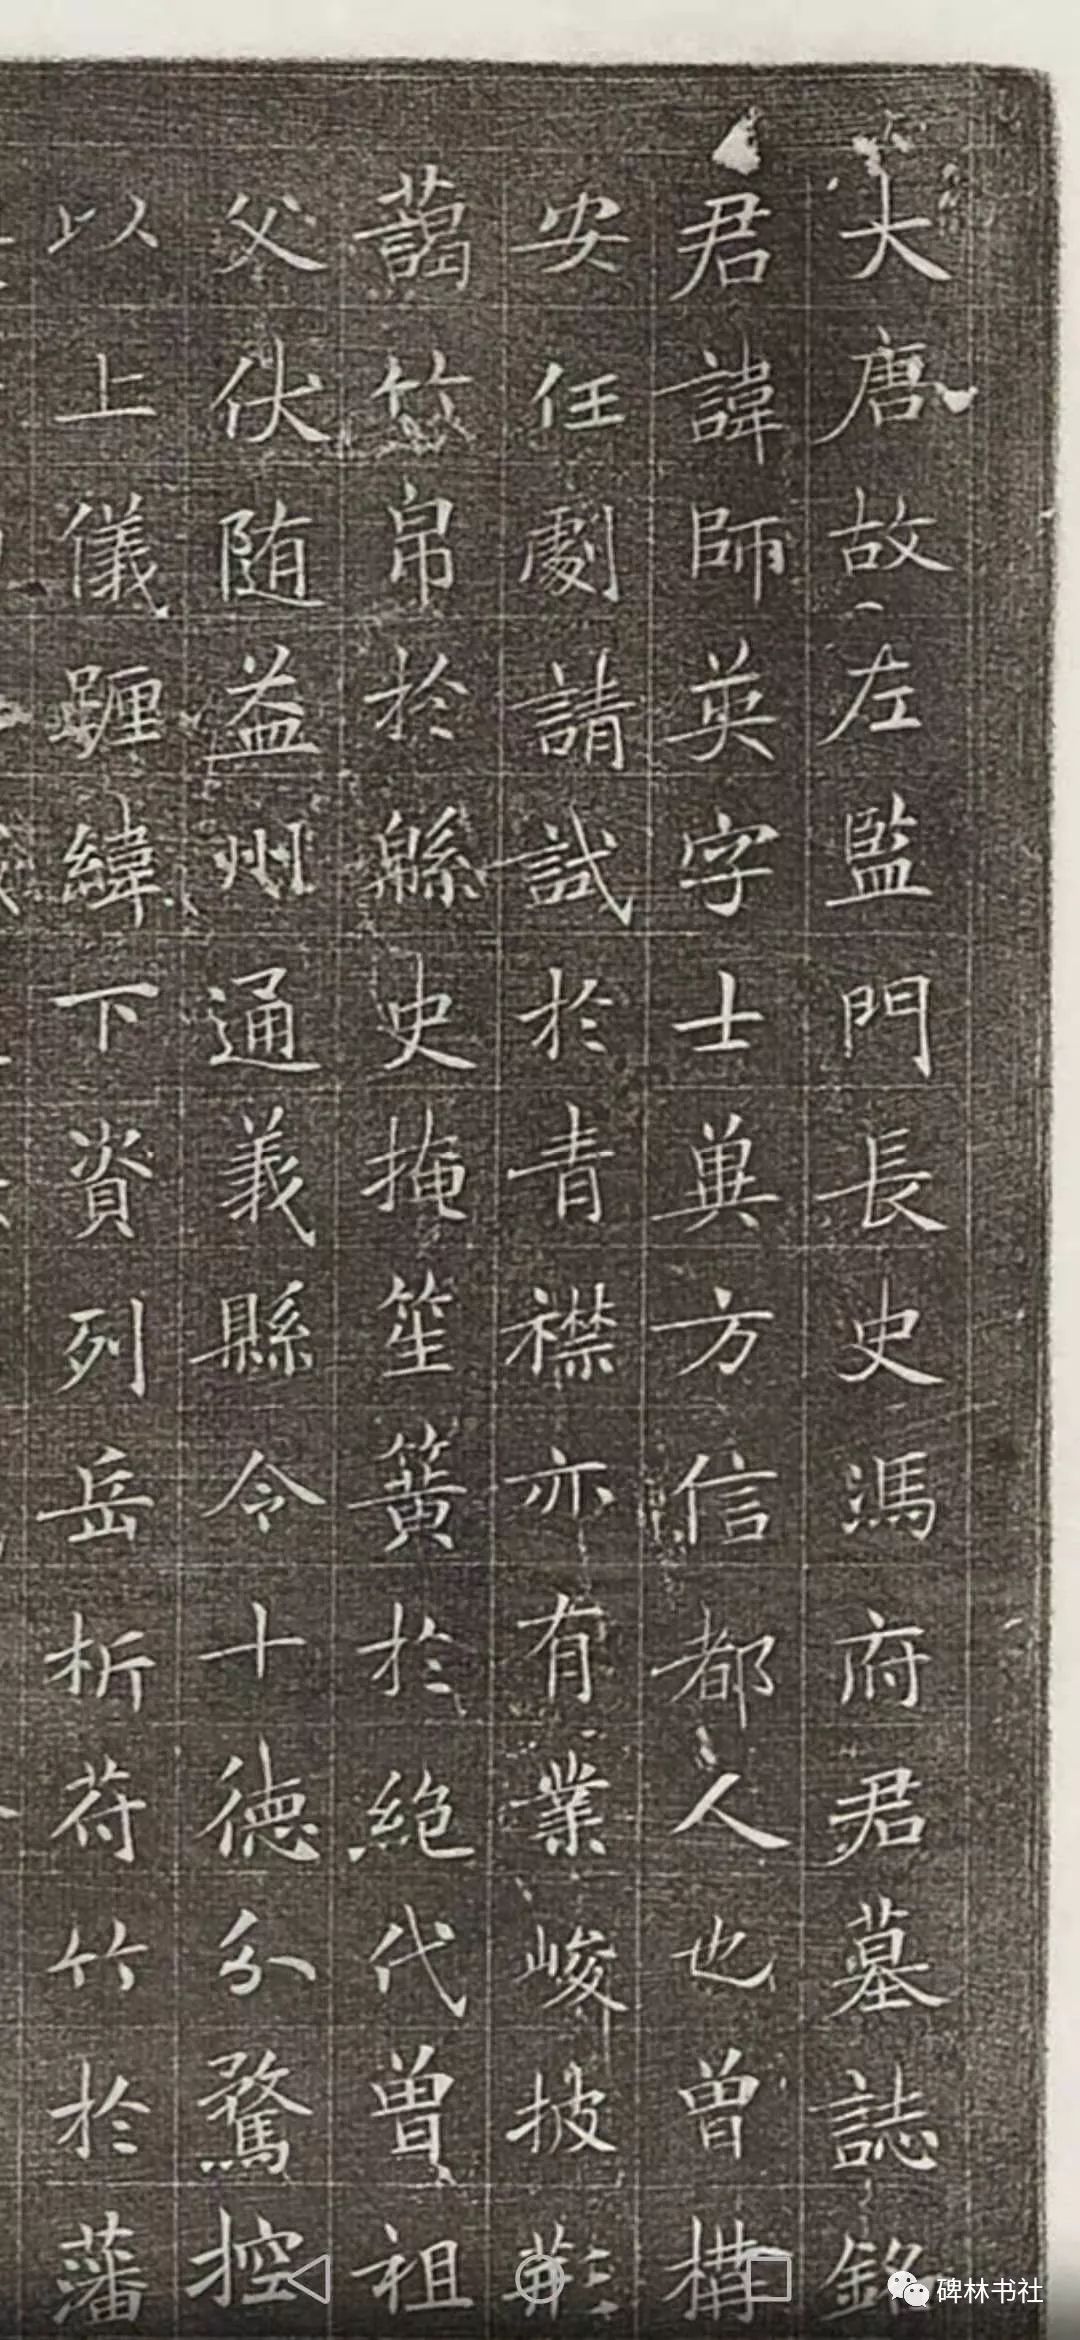 大唐故左監門長史馮府君墓誌銘
君諱師英字士兾方信都人也曽構
安任劇請試於青襟亦有業峻披
藹竹帛於緜史掩笙簧於絶代曽祖
父伏随益州通義縣令十德分騖控
以上儀躔緯下資列岳析苻竹於藩
碑林书社